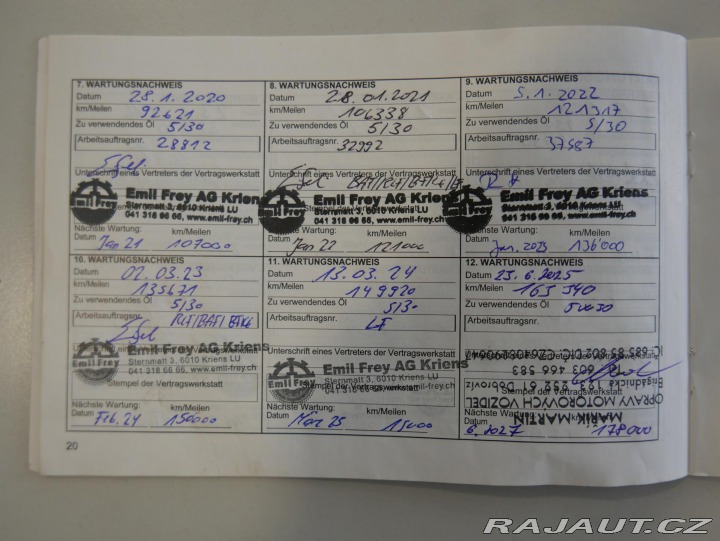 7. WARTUNGSNACHWEIS
Datum 28.1.2020
km/Meilen 92621
Zu verwendendes Öl 5/30
Arbeitsauftragsnr. 28812
Unterschrift eines Vertreters der Vertragswerkstatt
Emil Frey AG Kriens
Sternmatt 3, 6010 Kriens LU
041 318 66 66, www.emil-frey.ch
Emil Frey
Nächste Wartung: km/Meilen
Datum Jan 21 107000
8. WARTUNGSNACHWEIS
Datum 28.01.2021
km/Meilen 106338
Zu verwendendes Öl 5/30
Arbeitsauftragsnr. 32992
Unterschrift eines Vertreters der Vertragswerkstatt
Emil Frey AG Kriens
Sternmatt 3, 6010 Kriens LU
041 318 66 66, www.emil-frey.ch
Emil Frey
Nächste Wartung: km/Meilen
Datum Jan 22 121000
9. WARTUNGSNACHWEIS
Datum 5.1.2022
km/Meilen 121317
Zu verwendendes Öl 5/30
Arbeitsauftragsnr. 37587
Unterschrift eines Vertreters der Vertragswerkstatt
Emil Frey AG Kriens
Sternmatt 3, 6010 Kriens LU
041 318 66 66, www.emil-frey.ch
Emil Frey
Nächste Wartung: km/Meilen
Datum Jan. 2023 136'000
10. WARTUNGSNACHWEIS
Datum 02.03.23
km/Meilen 135471
Zu verwendendes Öl 5/30
Arbeitsauftragsnr.
Unterschrift eines Vertreters der Vertragswerkstatt
Emil Frey AG Kriens
Sternmatt 3, 6010 Kriens LU
041 318 66 66, www.emil-frey.ch
Emil Frey
Stempel der Vertragswerkstatt
Nächste Wartung: km/Meilen
Datum Feb. 24 150000
11. WARTUNGSNACHWEIS
Datum 13.03.24
km/Meilen 149920
Zu verwendendes Öl 5/30
Arbeitsauftragsnr.
Unterschrift eines Vertreters der Vertragswerkstatt
Emil Frey AG Kriens
Sternmatt 3, 6010 Kriens LU
041 318 66 66, www.emil-frey.ch
Emil Frey
Stempel der Vertragswerkstatt
Nächste Wartung: km/Meilen
Datum März 25
12. WARTUNGSNACHWEIS
Datum 23.6.2025
km/Meilen 163 940
Zu verwendendes Öl 5W30
Arbeitsauftragsnr.
Unterschrift eines Vertreters der Vertragswerkstatt
MAŘÍK MARTIN
OPRAVY MOTOROVÝCH VOZIDEL
Stempel der Vertragswerkstatt
Nächste Wartung: km/Meilen
Datum 6.2027 178000
20
RAJAUT.CZ